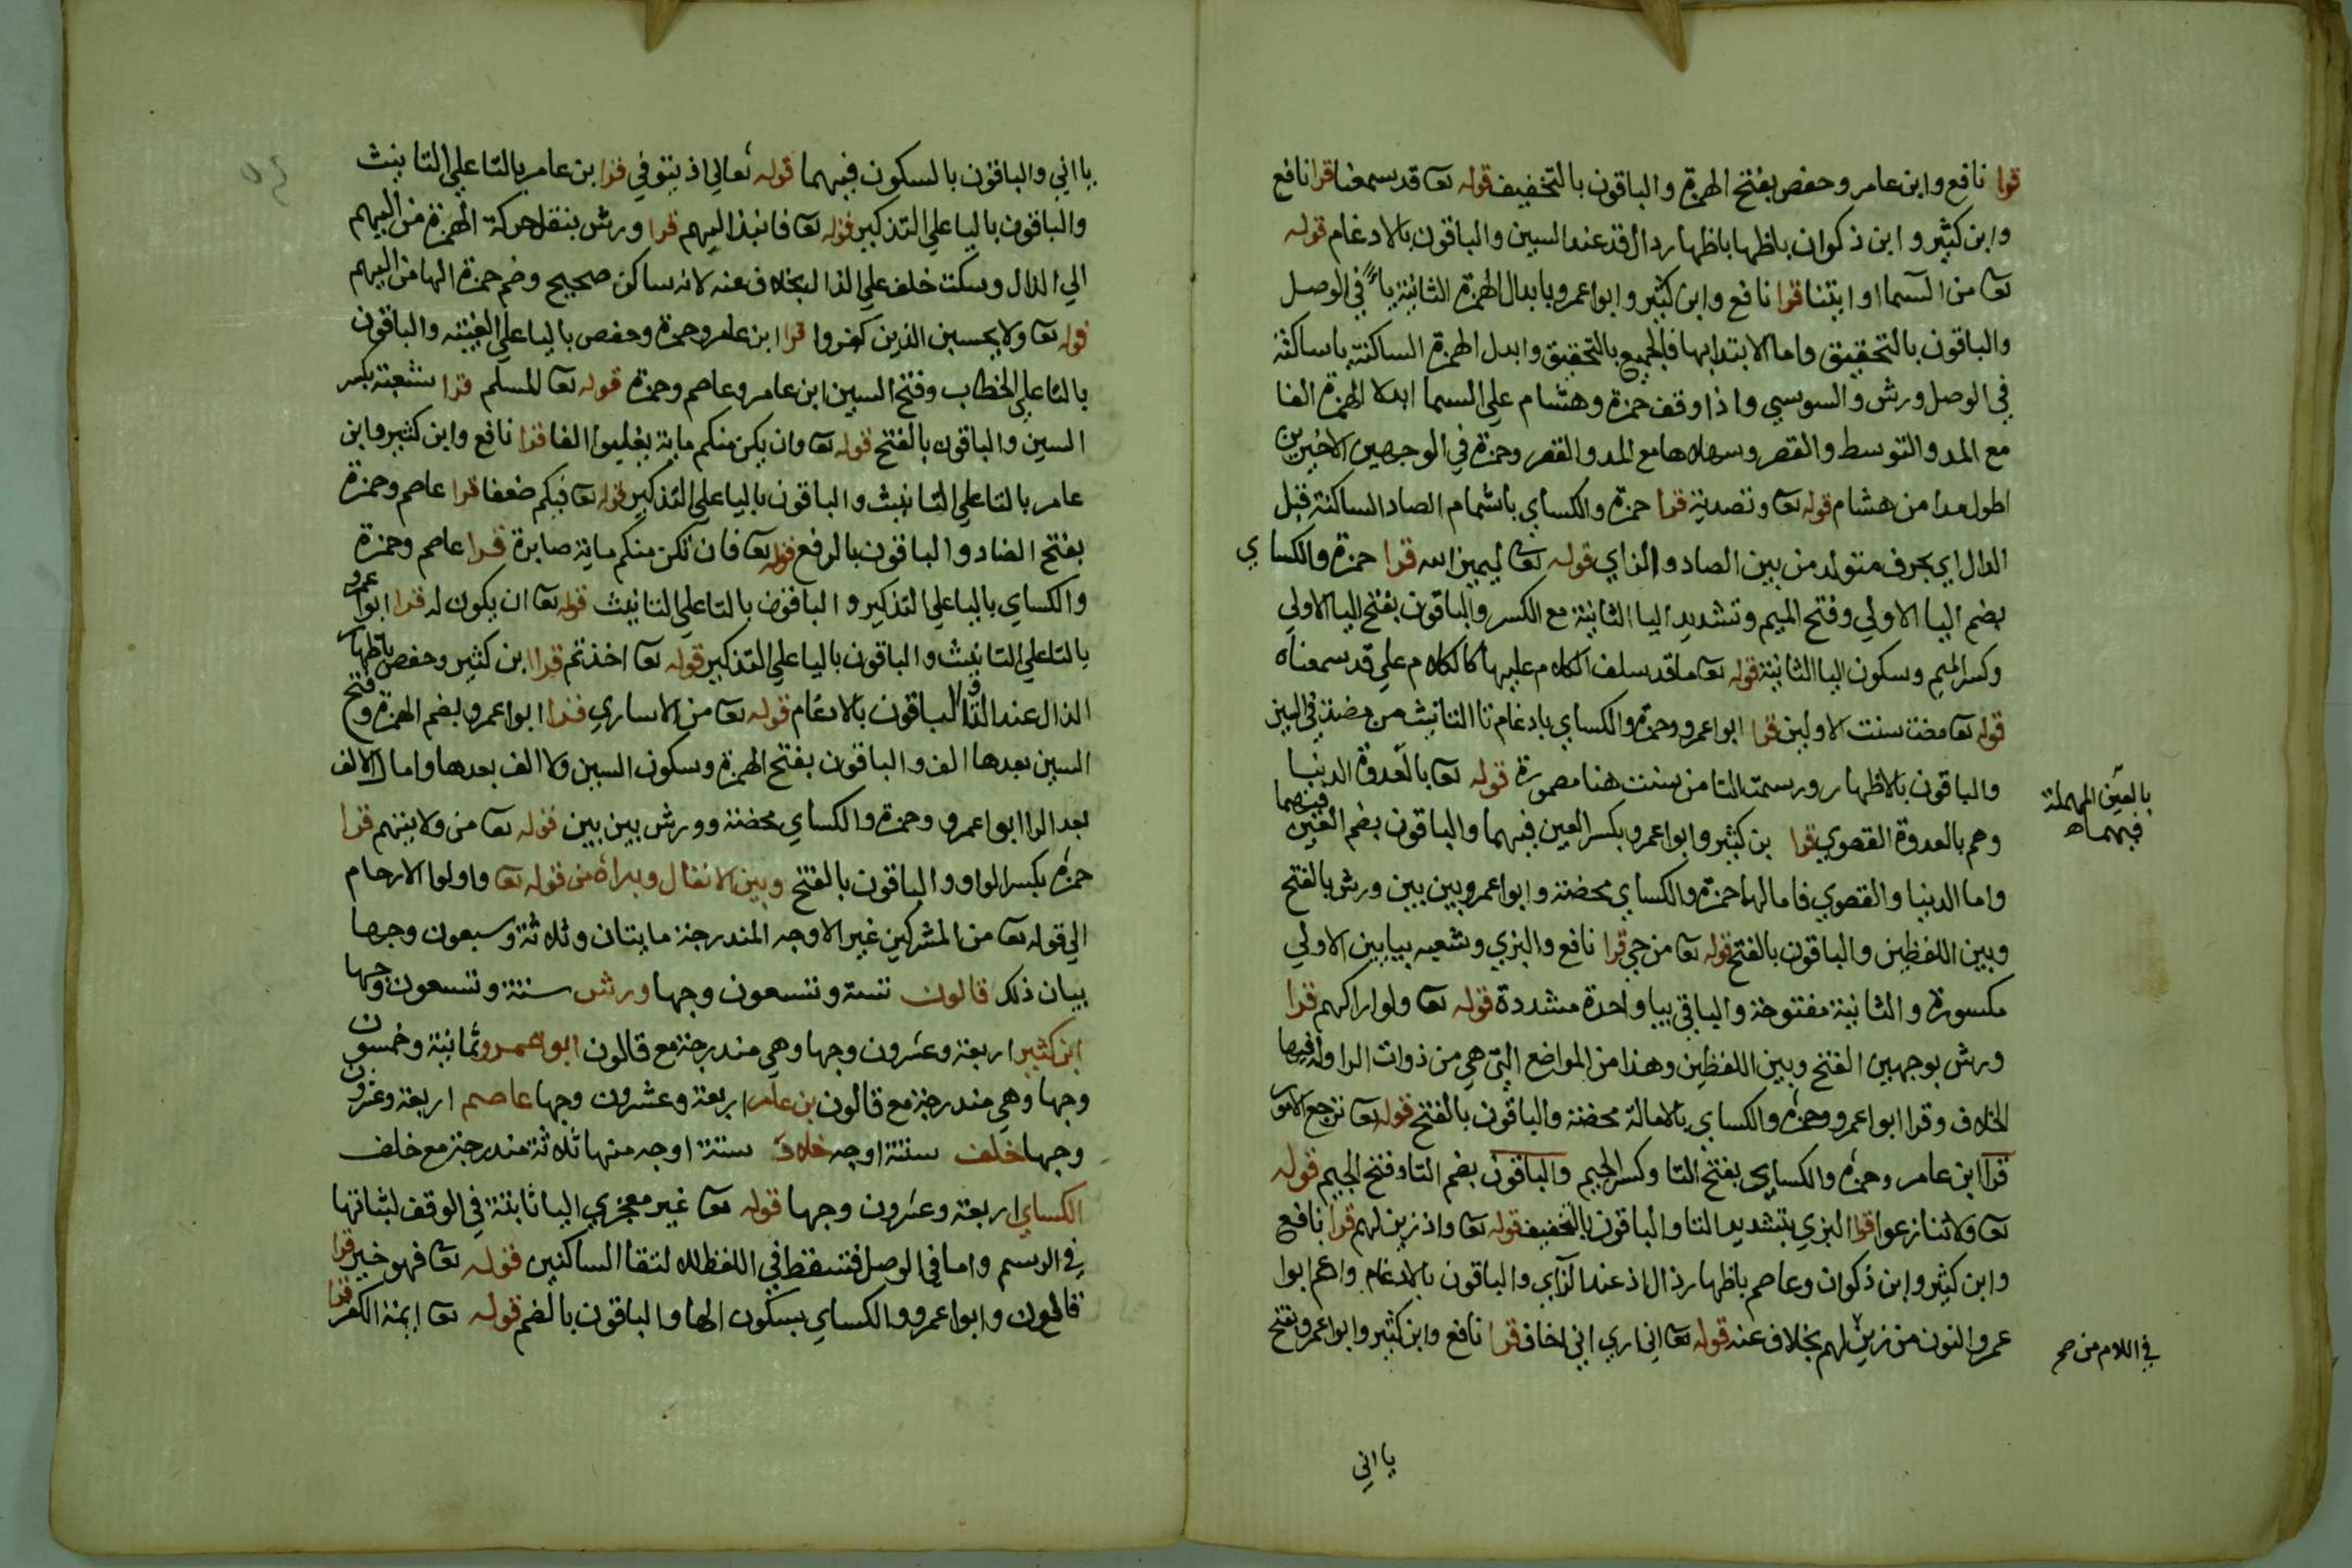 قرا نافع وابن عامر وحفص بفتح الهمزة والباقون بالتخفيف قوله تعا قد سمعنا قرا نافع
وابن كثير وابن ذكوان باظها باظهار دال قد عند السين والباقون بالادغام قوله
تعا من السما او ايتنا قرا نافع وابن كثير وابو اعمرو بابدال الهمزة الثانية ياً في الوصل
والباقون بالتحقيق واما الابتدا بها فالجميع بالتحقيق وابدل الهمزة الساكنة يا ساكنة
في الوصل ورش والسوسي واذا وقف حمزة وهشام علي السما ابدلا الهمزة الفا
مع المد والتوسط والقصر وسهلاها مع المد والقصر وحمزة في الوجهين الاخيرين
اطول مدا من هشام قوله تعا وتصدية قرا حمزة والكساي باشمام الصاد الساكنة قبل
الدال اي بحرف متولد من بين الصاد والزاي قوله تعا ليميز الله قرا حمزة والكساي
بضم اليا الاولي وفتح الميم وتشديد اليا الثانية مع الكسر والباقون بفتح اليا الاولي
وكسر الميم وسكون اليا الثانية قوله تعا ما قد سلف الكلام عليها كالكلام علي قد سمعناه
قوله تعا مضت سنت الاولين قرا ابو اعمرو وحمزة والكساي بادغام تا التانيث من مضت في السين
والباقون بالاظهار ورسمت التا من سنت هنا مصورة قوله تعا بالعدوة الدنيا
بالعين المهملة
فيهما اه
وهم بالعدوة القصوي قرا بن كثير وابو اعمرو بكسر العين فيهما والباقون بضم العين فيهما
واما الدنيا والقصوي فامالها حمزة والكساي محضة وابو اعمرو بين بين ورش بالفتح
وبين اللفظين والباقون بالفتح قوله تعا من حي قرا نافع والبزي وشعبه بيايين الاولي
مكسورة والثانية مفتوحة والباقي بيا واحدة مشددة قوله تعا ولو اراكهم قرا
ورش بوجهين الفتح وبين اللفظين وهذا من المواضع التي هي من ذوات الرا وله فيها
الخلاف وقرا ابو اعمرو وحمزة والكساي بالامالة محضة والباقون بالفتح قوله تعا ترجع الامور
قرا ابن عامر وحمزة والكساي بفتح التا وكسر الجيم والباقون بضم التا وفتح الجيم قوله
تعا ولا تنازعوا قرا البزي بتشديد التا والباقون بالتخفيف قوله تعا واذ زين لهم قرا نافع
وابن كثير وابن ذكوان وعاصم باظهار ذال اذ عند الزاي والباقون بالادغام وادغم ابوا
عمرو النون من زين لهم بخلاف عنه قوله تعا اني اري اني اخاف قرا نافع وابن كثير وابو اعمرو بفتح
في اللام من صح
يا اني
يا اني والباقون بالسكون فيهما قوله تعالي اذ يتوفي قرا بن عامر بالتا علي التانيث
والباقون باليا علي التذكير قوله تعا فانبذ اليهم قرا ورش بنقل حركة الهمزة من اليهم
الي الذال وسكت خلف علي الذال بخلاف عنه لانه ساكن صحيح وضم حمزة الها من اليهم
قوله تعا ولا يحسبن الذين كفروا قرا ابن عامر وحمزة وحفص باليا علي الغيبة والباقون
بالتا علي الخطاب وفتح السين ابن عامر وعاصم وحمزة قوله تعا للسلم قرا شعبة بكسر
السين والباقون بالفتح قوله تعا وان يكن منكم ماية يغلبوا الفا قرا نافع وابن كثير وابن
عامر بالتا علي التانيث والباقون باليا علي التذكير قوله تعا فيكم ضعفا قرا عاصم وحمزة
بفتح الضاد والباقون بالرفع قوله تعا فان تكن منكم ماية صابرة قرا عاصم وحمزة
والكساي باليا علي التذكير والباقون بالتا علي التانيث قوله تعا ان يكون له قرا ابوا عمرو
بالتا علي التانيث والباقون باليا علي التذكير قوله تعا اخذتم قرا ابن كثير وحفص باظهار
الذال عند التا والباقون بالادغام قوله تعا من الاساري قرا ابو اعمرو بضم الهمزة وفتح
السين بعدها الف والباقون بفتح الهمزة وسكون السين ولا الف بعدها وامال الالف
بعد الرا ابو اعمرو وحمزة والكساي محضة وورش بين بين قوله تعا من ولايتهم قرا
حمزة بكسر الواو والباقون بالفتح وبين الانفال وبراة من قوله تعا واولوا الارحام
الي قوله تعا من المشركين غير الاوجه المندرجة مايتان وثلاثة وسبعون وجها
بيان ذلك قالون ستة وتسعون وجها ورش ستة وتسعون وجها
ابن كثير اربعة وعشرون وجها وهي مندرجة مع قالون ابو اعمرو ثمانية وخمسون
وجها وهي مندرجة مع قالون بن عامر اربعة وعشرون وجها عاصم اربعة وعشرون
وجها خلف ستة اوجه خلاد ستة اوجه منها ثلاثة مندرجة مع خلف
الكساي اربعة وعشرون وجها قوله تعا غير معجزي اليا ثابتة في الوقف لثباتها
في الرسم واما في الوصل فتسقط في اللفظ لالتقا الساكنين قوله تعا فهو خير قرا
قالون وابو اعمرو والكساي بسكون الها والباقون بالضم قوله تعا ايمة الكفر قرا